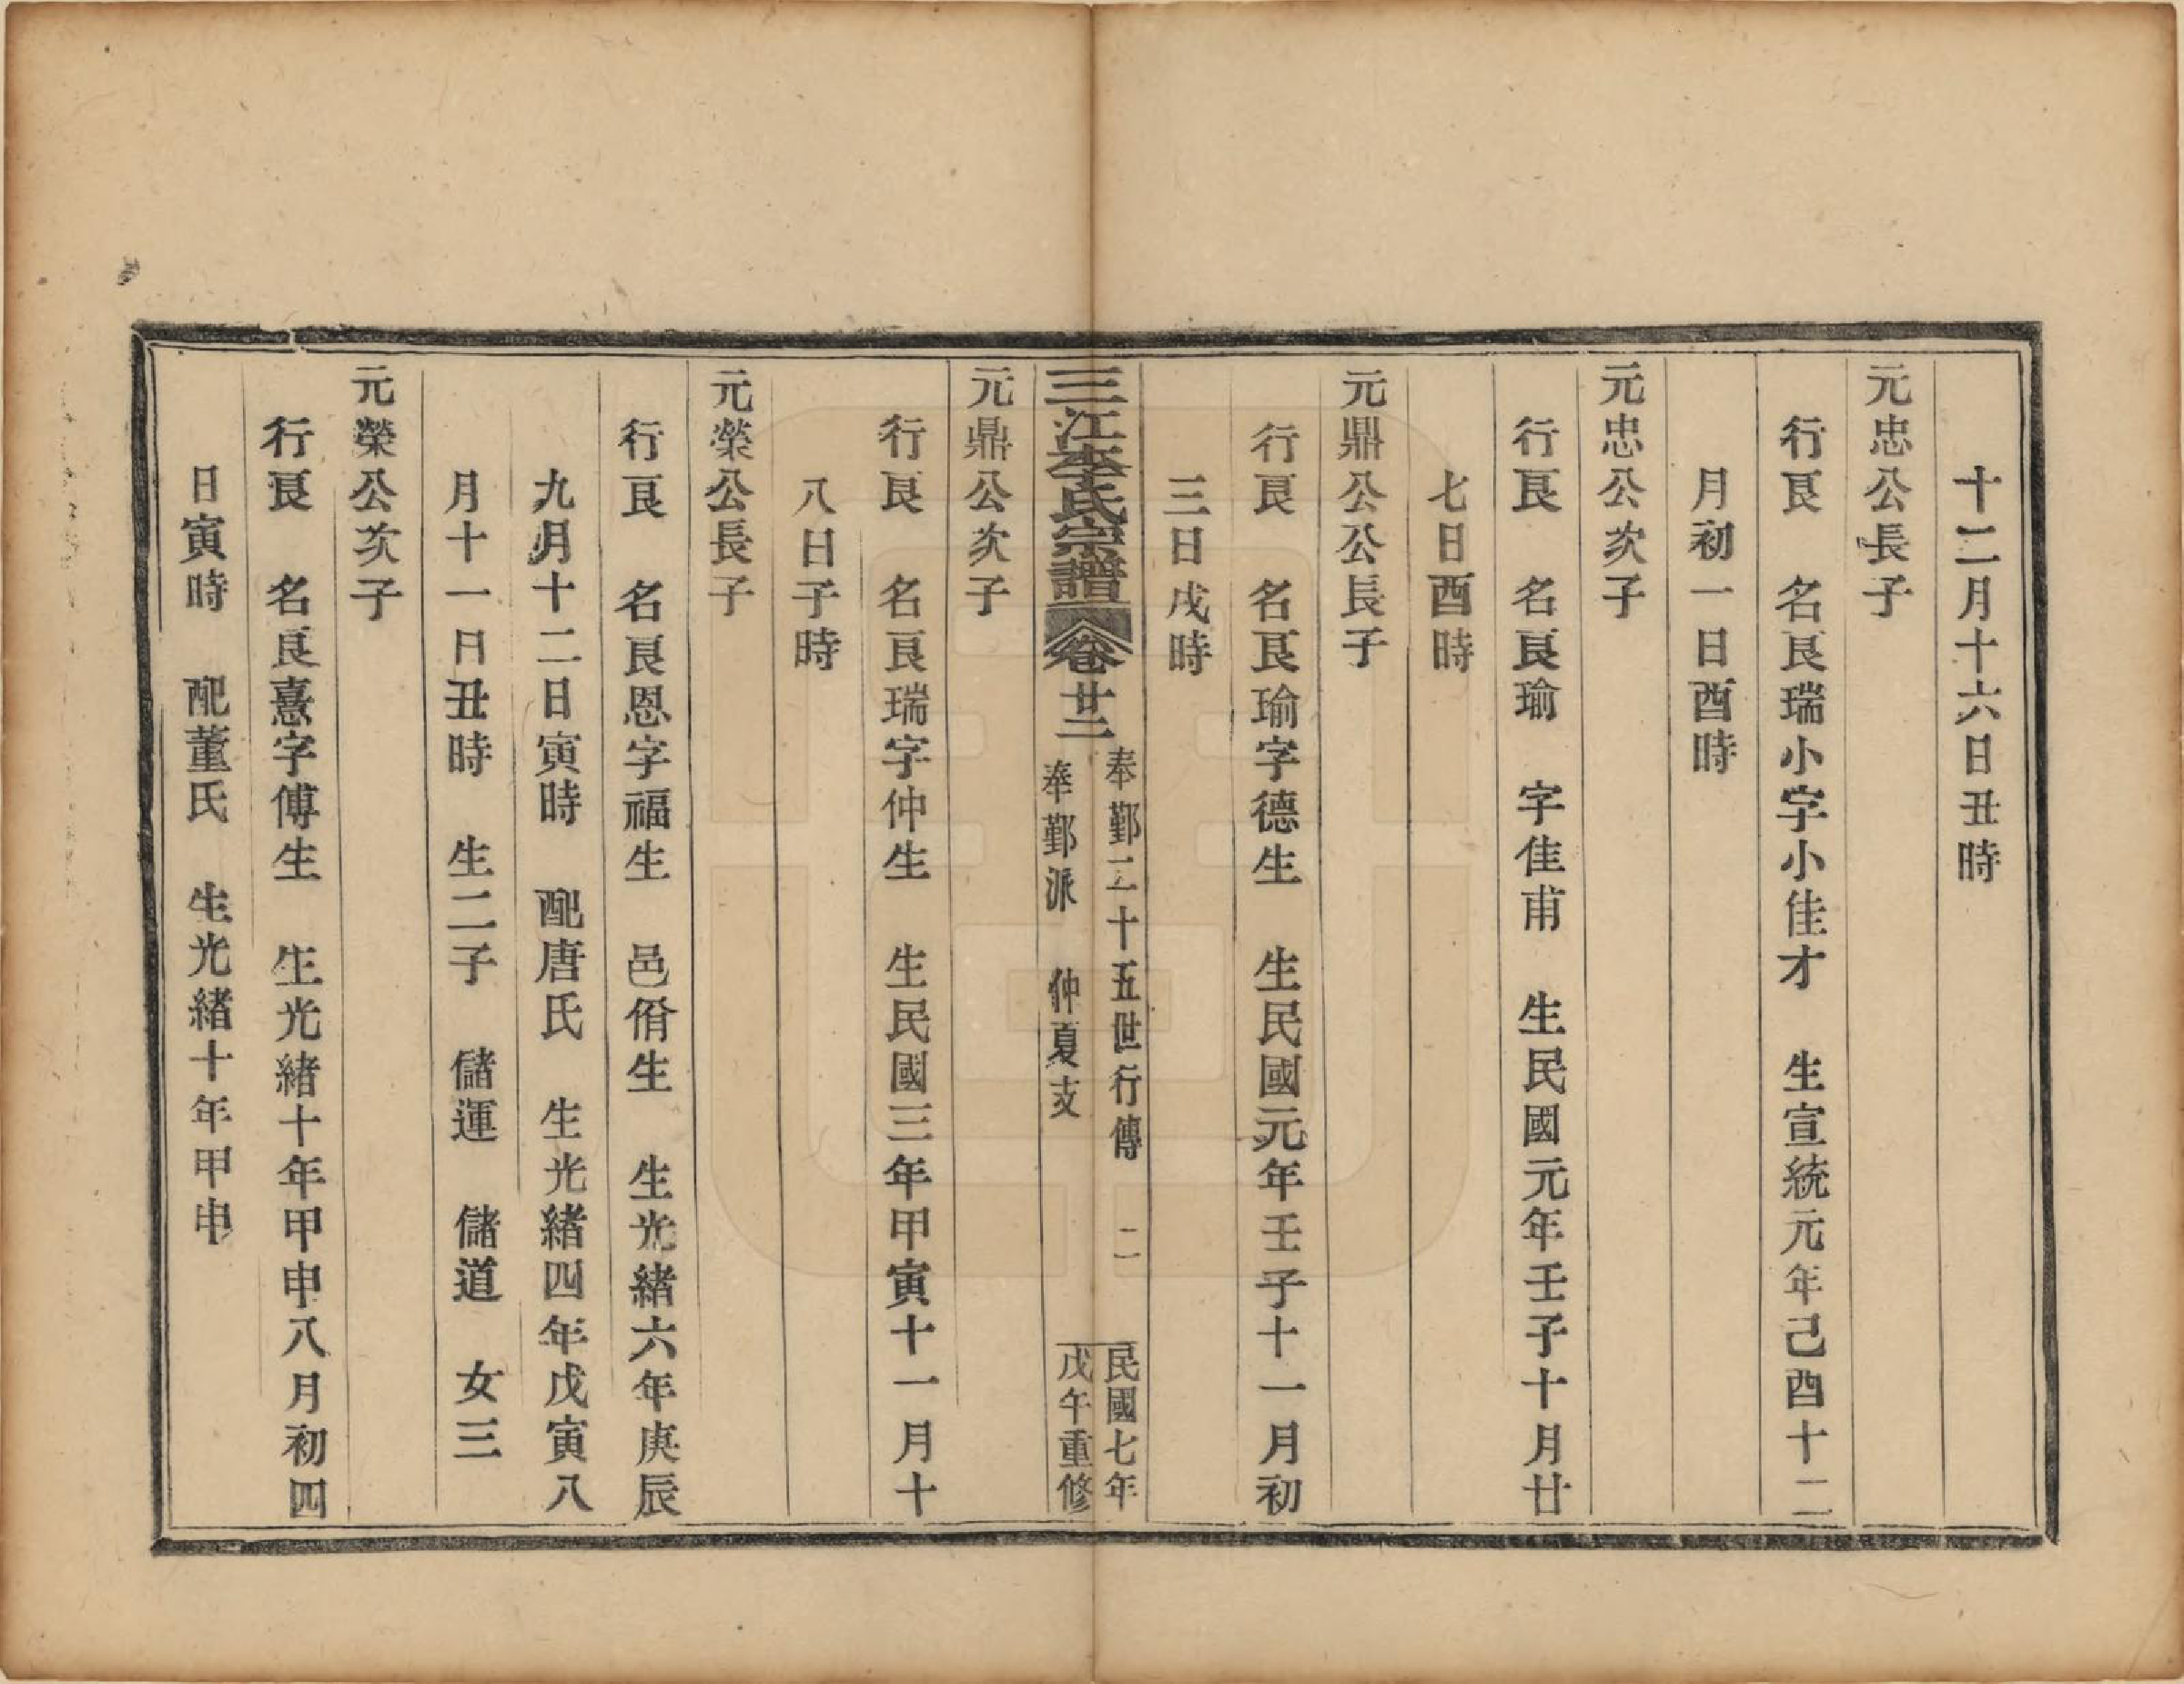 十二月十六日丑時
元忠公長子
行良　名良瑞小字小佳才　生宣統元年己酉十二
月初一日酉時
元忠公次子
行良　名良瑜　字佳甫　生民國元年壬子十月廿
七日酉時
元鼎公公長子
行良　名良瑜字德生　生民國元年壬子十一月初
三日戌時
三江李氏宗譜
卷廿二
奉鄞二十五世行傳　二
奉鄞派　仲夏支
民國七年
戊午重修
元鼎公次子
行良　名良瑞字仲生　生民國三年甲寅十一月十
八日子時
元榮公長子
行良　名良恩字福生　邑佾生　生光緒六年庚辰
九月十二日寅時　配唐氏　生光緒四年戊寅八
月十一日丑時　生二子　儲運　儲道　女三
元榮公次子
行良　名良憙字傅生　生光緒十年甲申八月初四
日寅時　配董氏　生光緒十年甲申